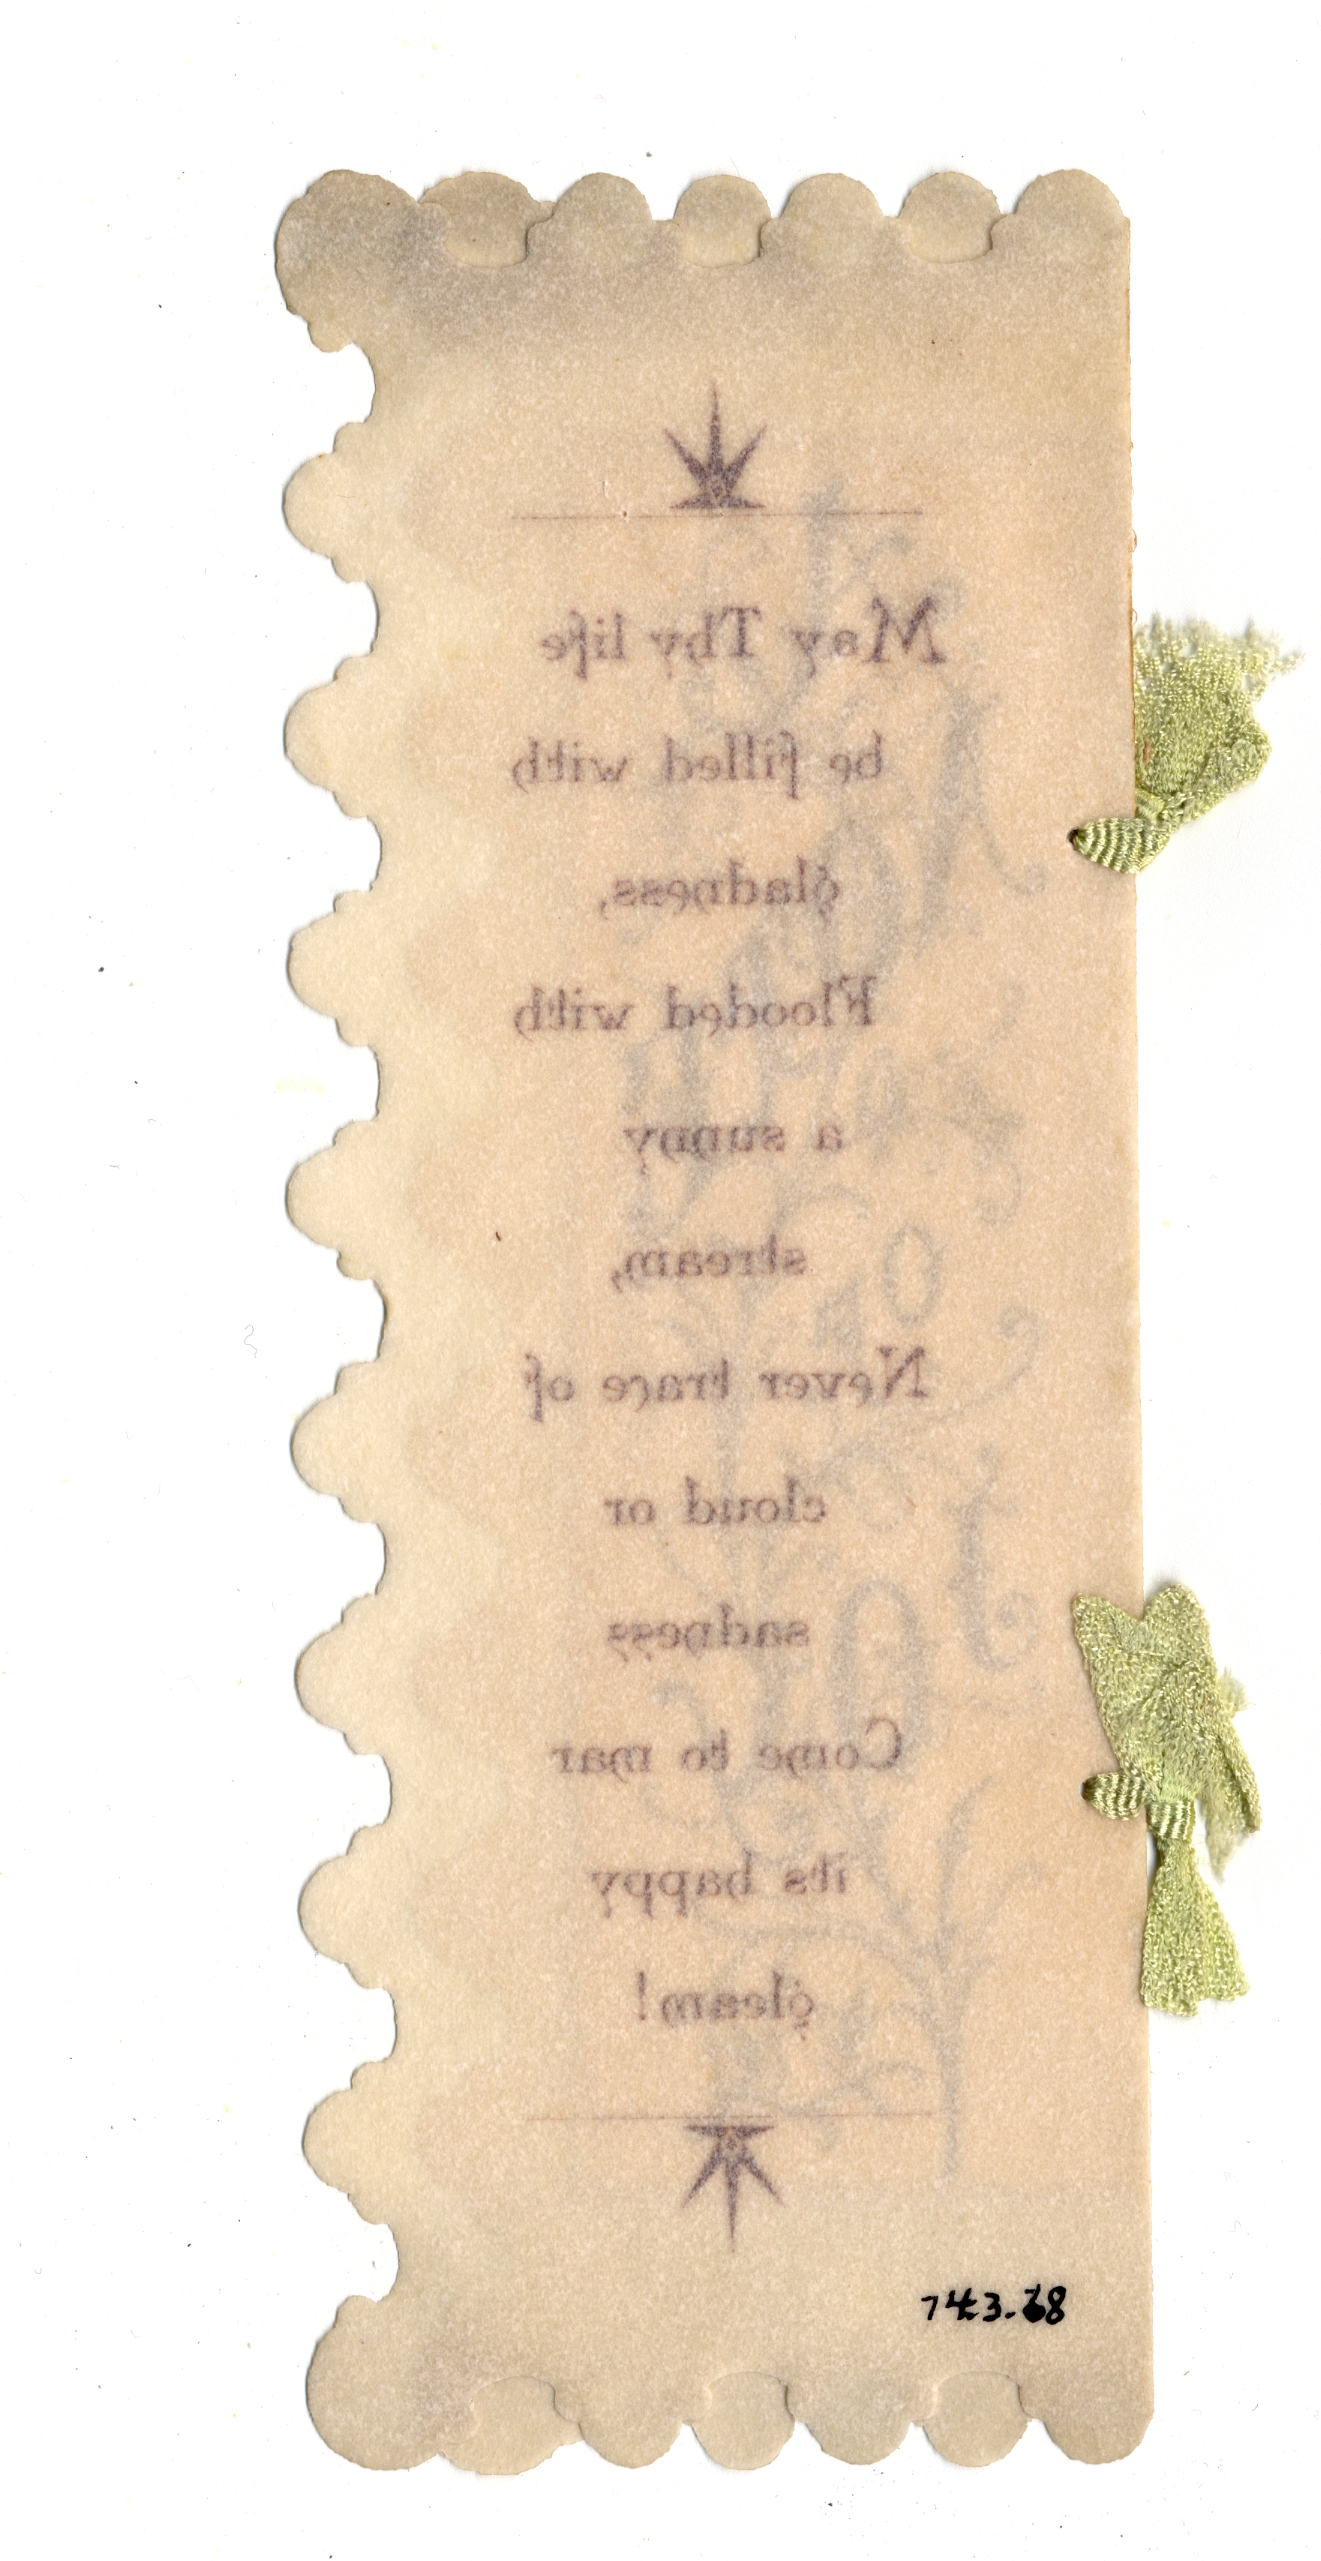 May Thy life
be filled with
gladness,
Flooded with
a sunny
stream,
Never trace of
cloud or
sadness
Come to mar
its happy
gleam!
743.68